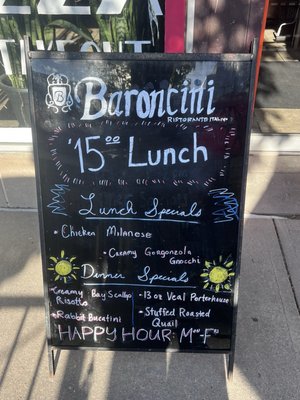 Baroncini
RISTORANTE ITALIANO
$15.00 Lunch
Lunch Specials
• Chicken Milanese
• Creamy Gorgonzola
Gnocchi
Dinner Specials
• Creamy Bay Scallop
Risotto
• Rabbit Bucatini
• 13 oz Veal Porterhouse
• Stuffed Roasted
Quail
HAPPY HOUR: M-F